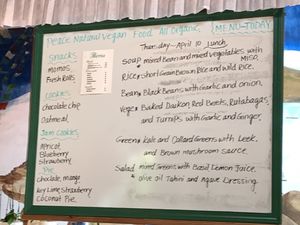 Peace Natural Vegan Food All Organic
MENU-TODAY
Snacks
Momos
Fresh Rolls
Cookies
chocolate chip
Oatmeal
Jam Cookies
Apricot
Blueberry
Strawberry
Pie
choclate, mango
key Lime, Strawberry
Coconut Pie
Menu
Thursday - April 10 Lunch
SOUP: mixed Bean and mixed vegetables with
MISO.
RICE: short Grain Brown Rice and wild Rice.
Bean: Black Beans with Garlic and onion.
Vege: Baked Daikon, Red Beets, Rutabagas,
and Turnips with Garlic and Ginger,
Green: Kale and Collard Greens with Leek,
and Brown mushroom sauce.
Salad: mixed Greens with Basil Lemon Juice,
olive oil Tahini and Agave Dressing